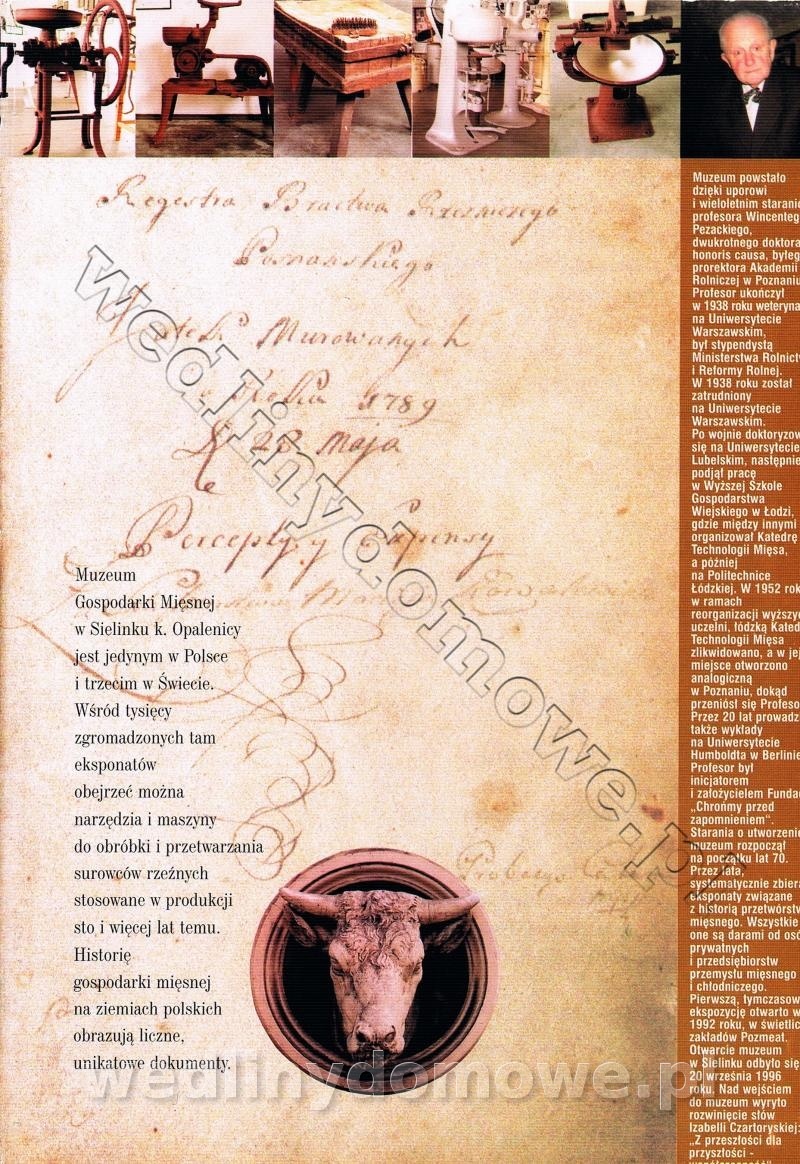 Regestra Bractwa Rzeznickiego
Poznanskiego
Jatek Murowanych
Roku 1789
28 Maja
Percepty y Expensy
Muzeum
Gospodarki Mięsnej
w Sielinku k. Opalenicy
jest jedynym w Polsce
i trzecim w Świecie.
Wśród tysięcy
zgromadzonych tam
eksponatów
obejrzeć można
narzędzia i maszyny
do obróbki i przetwarzania
surowców rzeźnych
stosowane w produkcji
sto i więcej lat temu.
Historię
gospodarki mięsnej
na ziemiach polskich
obrazują liczne,
unikatowe dokumenty.
Muzeum powstało
dzięki uporowi
i wieloletnim staranio
profesora Wincenteg
Pezackiego,
dwukrotnego doktora
honoris causa, byłeg
prorektora Akademii
Rolniczej w Poznaniu
Profesor ukończył
w 1938 roku weteryna
na Uniwersytecie
Warszawskim,
był stypendystą
Ministerstwa Rolnictw
i Reformy Rolnej.
W 1938 roku został
zatrudniony
na Uniwersytecie
Warszawskim.
Po wojnie doktoryzow
się na Uniwersytecie
Lubelskim, następnie
podjął pracę
w Wyższej Szkole
Gospodarstwa
Wiejskiego w Łodzi,
gdzie między innymi
organizował Katedrę
Technologii Mięsa,
a później
na Politechnice
Łódzkiej. W 1952 rok
w ramach
reorganizacji wyższyc
uczelni, łódzką Kated
Technologii Mięsa
zlikwidowano, a w jej
miejsce otworzono
analogiczną
w Poznaniu, dokąd
przeniósł się Profeso
Przez 20 lat prowadzi
także wykłady
na Uniwersytecie
Humboldta w Berlinie
Profesor był
inicjatorem
i założycielem Fundac
„Chrońmy przed
zapomnieniem”.
Starania o utworzenie
muzeum rozpoczął
na początku lat 70.
Przez lata,
systematycznie zbiera
eksponaty związane
z historią przetwórstw
mięsnego. Wszystkie
one są darami od osó
prywatnych
i przedsiębiorstw
przemysłu mięsnego
i chłodniczego.
Pierwszą, tymczasow
ekspozycję otwarto w
1992 roku, w świetlic
zakładów Pozmeat.
Otwarcie muzeum
w Sielinku odbyło się
20 września 1996
roku. Nad wejściem
do muzeum wyryto
rozwinięcie słów
Izabelli Czartoryskiej:
„Z przeszłości dla
przyszłości -
wedlinydomowe.pl
wedlinydomowe.pl